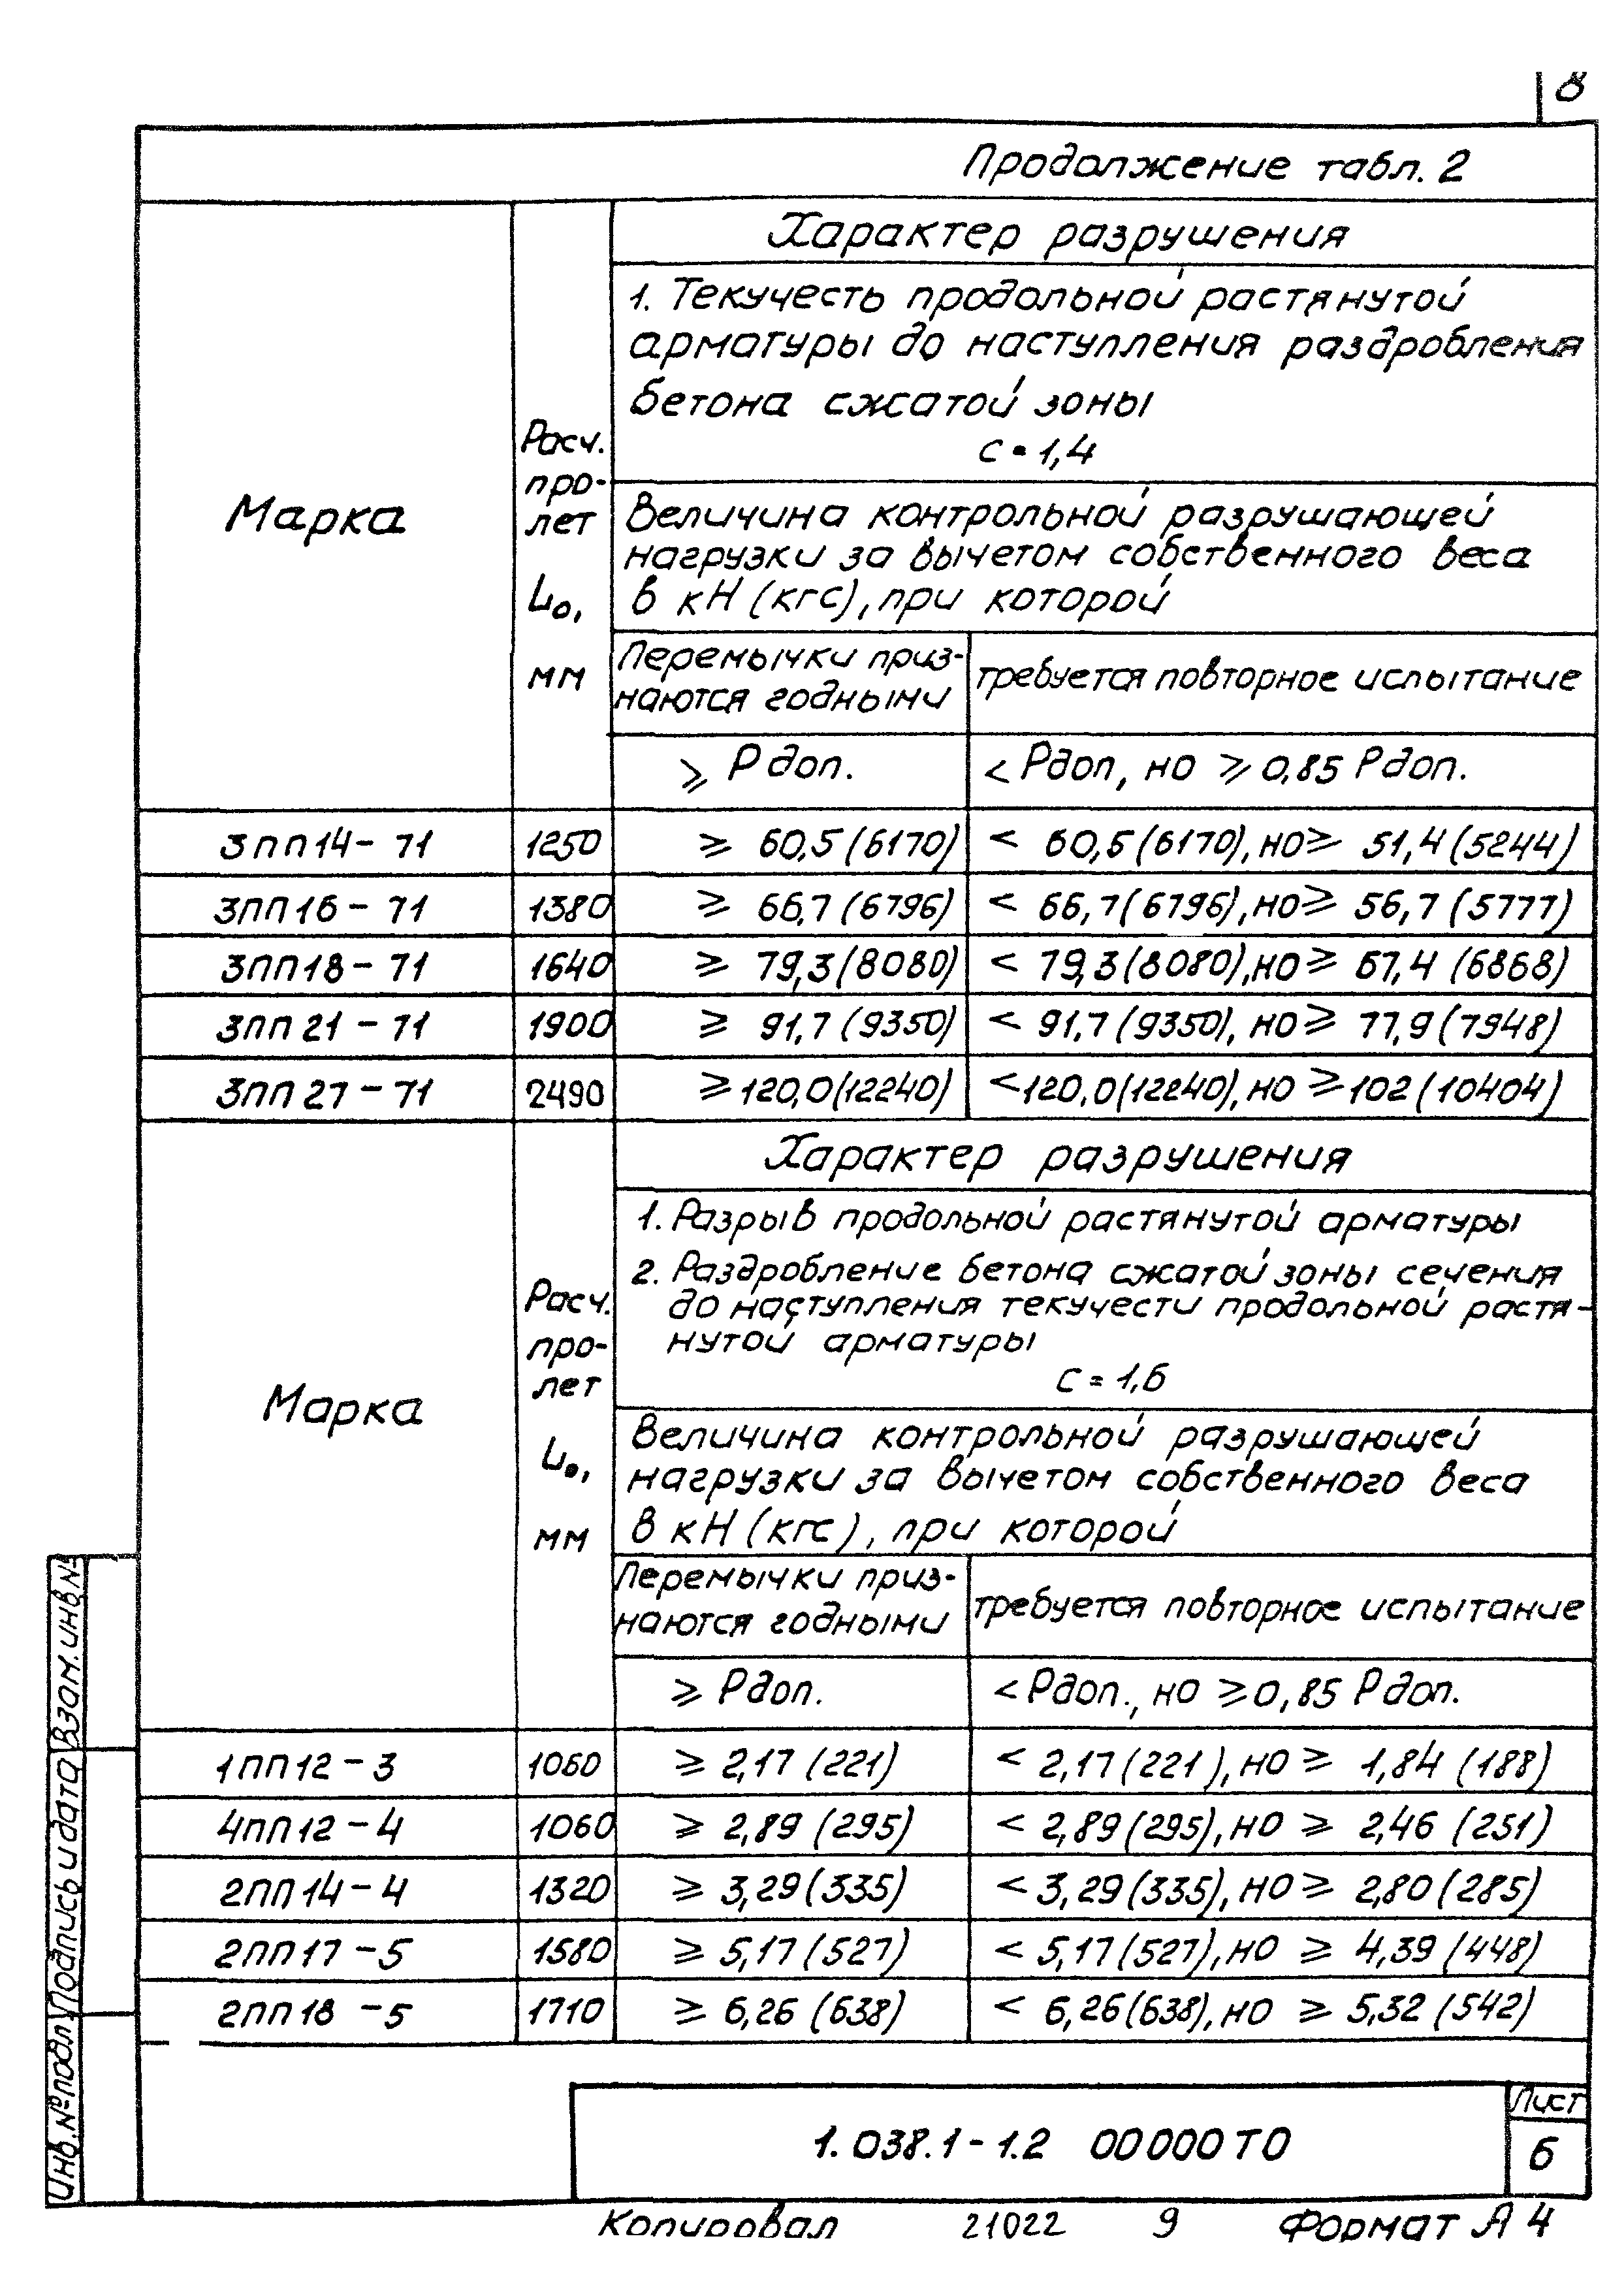 8
Продолжение табл. 2
Марка
Расч.
про-
лет
L₀,
мм
Характер разрушения
1. Текучесть продольной растянутой
арматуры до наступления раздробления
бетона сжатой зоны
с = 1,4
Величина контрольной разрушающей
нагрузки за вычетом собственного веса
в кН (кгс), при которой
Перемычки приз-
наются годными
требуется повторное испытание
⩾ Рдоп.
< Рдоп, но ⩾ 0,85 Рдоп.
3ПП14-71 1250 ⩾ 60,5 (6170) < 60,5 (6170), но ⩾ 51,4 (5244)
3ПП16-71 1380 ⩾ 66,7 (6796) < 66,7 (6796), но ⩾ 56,7 (5777)
3ПП18-71 1640 ⩾ 79,3 (8080) < 79,3 (8080), но ⩾ 67,4 (6868)
3ПП21-71 1900 ⩾ 91,7 (9350) < 91,7 (9350), но ⩾ 77,9 (7948)
3ПП27-71 2490 ⩾ 120,0 (12240) < 120,0 (12240), но ⩾ 102 (10404)
Марка
Расч.
про-
лет
L₀,
мм
Характер разрушения
1. Разрыв продольной растянутой арматуры
2. Раздробление бетона сжатой зоны сечения
до наступления текучести продольной растя-
нутой арматуры
с = 1,6
Величина контрольной разрушающей
нагрузки за вычетом собственного веса
в кН (кгс), при которой
Перемычки приз-
наются годными
требуется повторное испытание
⩾ Рдоп.
< Рдоп., но ⩾ 0,85 Рдоп.
1ПП12-3 1060 ⩾ 2,17 (221) < 2,17 (221), но ⩾ 1,84 (188)
4ПП12-4 1060 ⩾ 2,89 (295) < 2,89 (295), но ⩾ 2,46 (251)
2ПП14-4 1320 ⩾ 3,29 (335) < 3,29 (335), но ⩾ 2,80 (285)
2ПП17-5 1580 ⩾ 5,17 (527) < 5,17 (527), но ⩾ 4,39 (448)
2ПП18-5 1710 ⩾ 6,26 (638) < 6,26 (638), но ⩾ 5,32 (542)
Взам. инв. №
Подпись и дата
Инв. № подл.
1.038.1-1.2 00000ТО
Лист
6
Копировал 21022 9 Формат А4